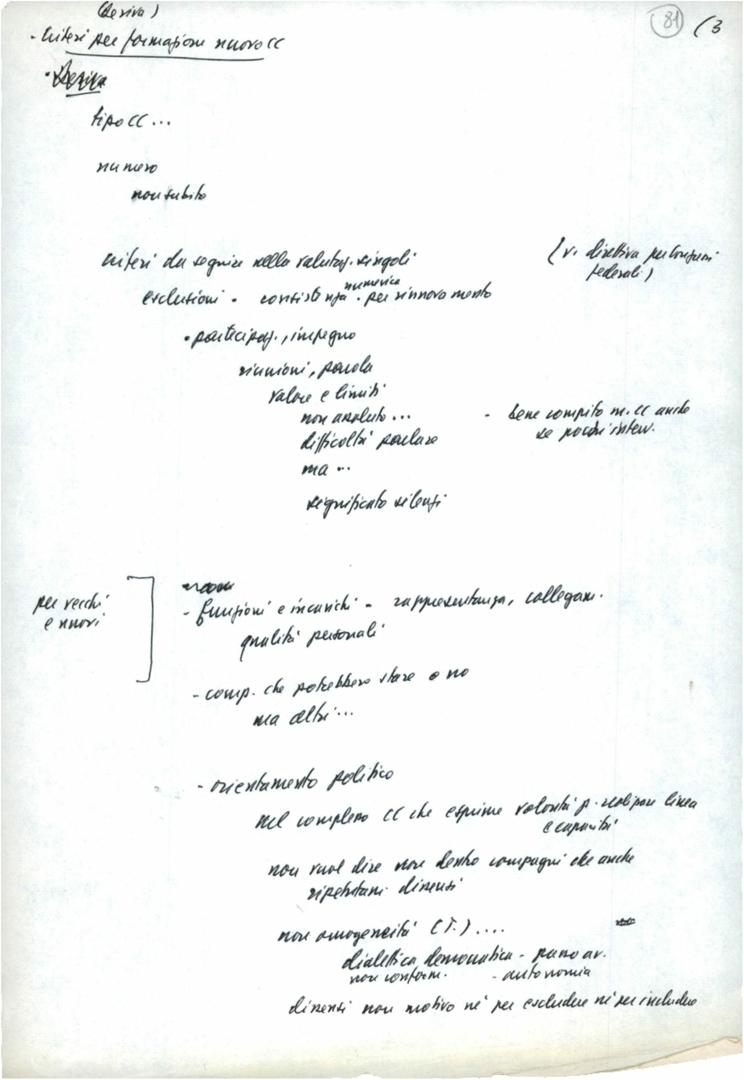 (deriva)
81 (3
- Criteri per formazione nuovo CC
tipo CC ...
numero
non subito
criteri da seguire nella valutaz. singoli
(v. direttiva per Congressi
federali)
numerica
esclusioni - consistenza - per rinnovamento
• partecipaz., impegno
riunioni, parola
valore e limiti
non assoluto ...
- bene compito m. CC anche
se pochi interv.
difficoltà parlare
ma ...
significato silenzi
per vecchi
e nuovi
- funzioni e incarichi - rappresentanza, collegam.
qualità personali
- comp. che potrebbero stare o no
ma altri ...
- orientamento politico
nel complesso CC che esprime volontà p. realizzare linea
e capacità
non vuol dire non dentro compagni che anche
ripetutam. dissensi
non omogeneità (T.) ....
dialettica democratica -
non conform. - autonomia
dissensi non motivo né per escludere né per includere